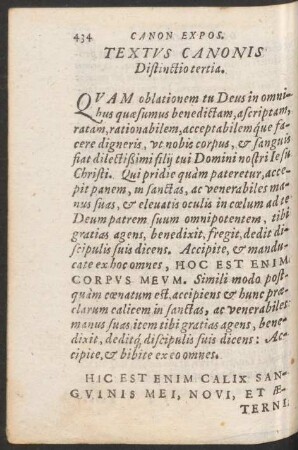 434 CANON EXPOS.
TEXTVS CANONIS
Distinctio tertia.
QVAM oblationem tu Deus in omni-
bus quæsumus benedictam, ascriptam,
ratam, rationabilem, acceptabilemque fa-
cere digneris, vt nobis corpus, & sanguis
fiat dilectissimi filij tui Domini nostri Iesu
Christi. Qui pridie quàm pateretur, acce-
pit panem, in sanctas, ac venerabiles ma-
nus suas, & eleuatis oculis in cœlum ad te
Deum patrem suum omnipotentem, tibi
gratias agens, benedixit, fregit, dedit di-
scipulis suis dicens. Accipite, & mandu-
cate ex hoc omnes, HOC EST ENIM
CORPVS MEVM. Simili modo post-
quàm cœnatum est, accipiens & hunc præ-
clarum calicem in sanctas, ac venerabiles
manus suas item tibi gratias agens, bene-
dixit, deditq́ discipulis suis dicens: Ac-
cipite, & bibite ex eo omnes.
HIC EST ENIM CALIX SAN-
GVINIS MEI, NOVI, ET Æ-
TERNI